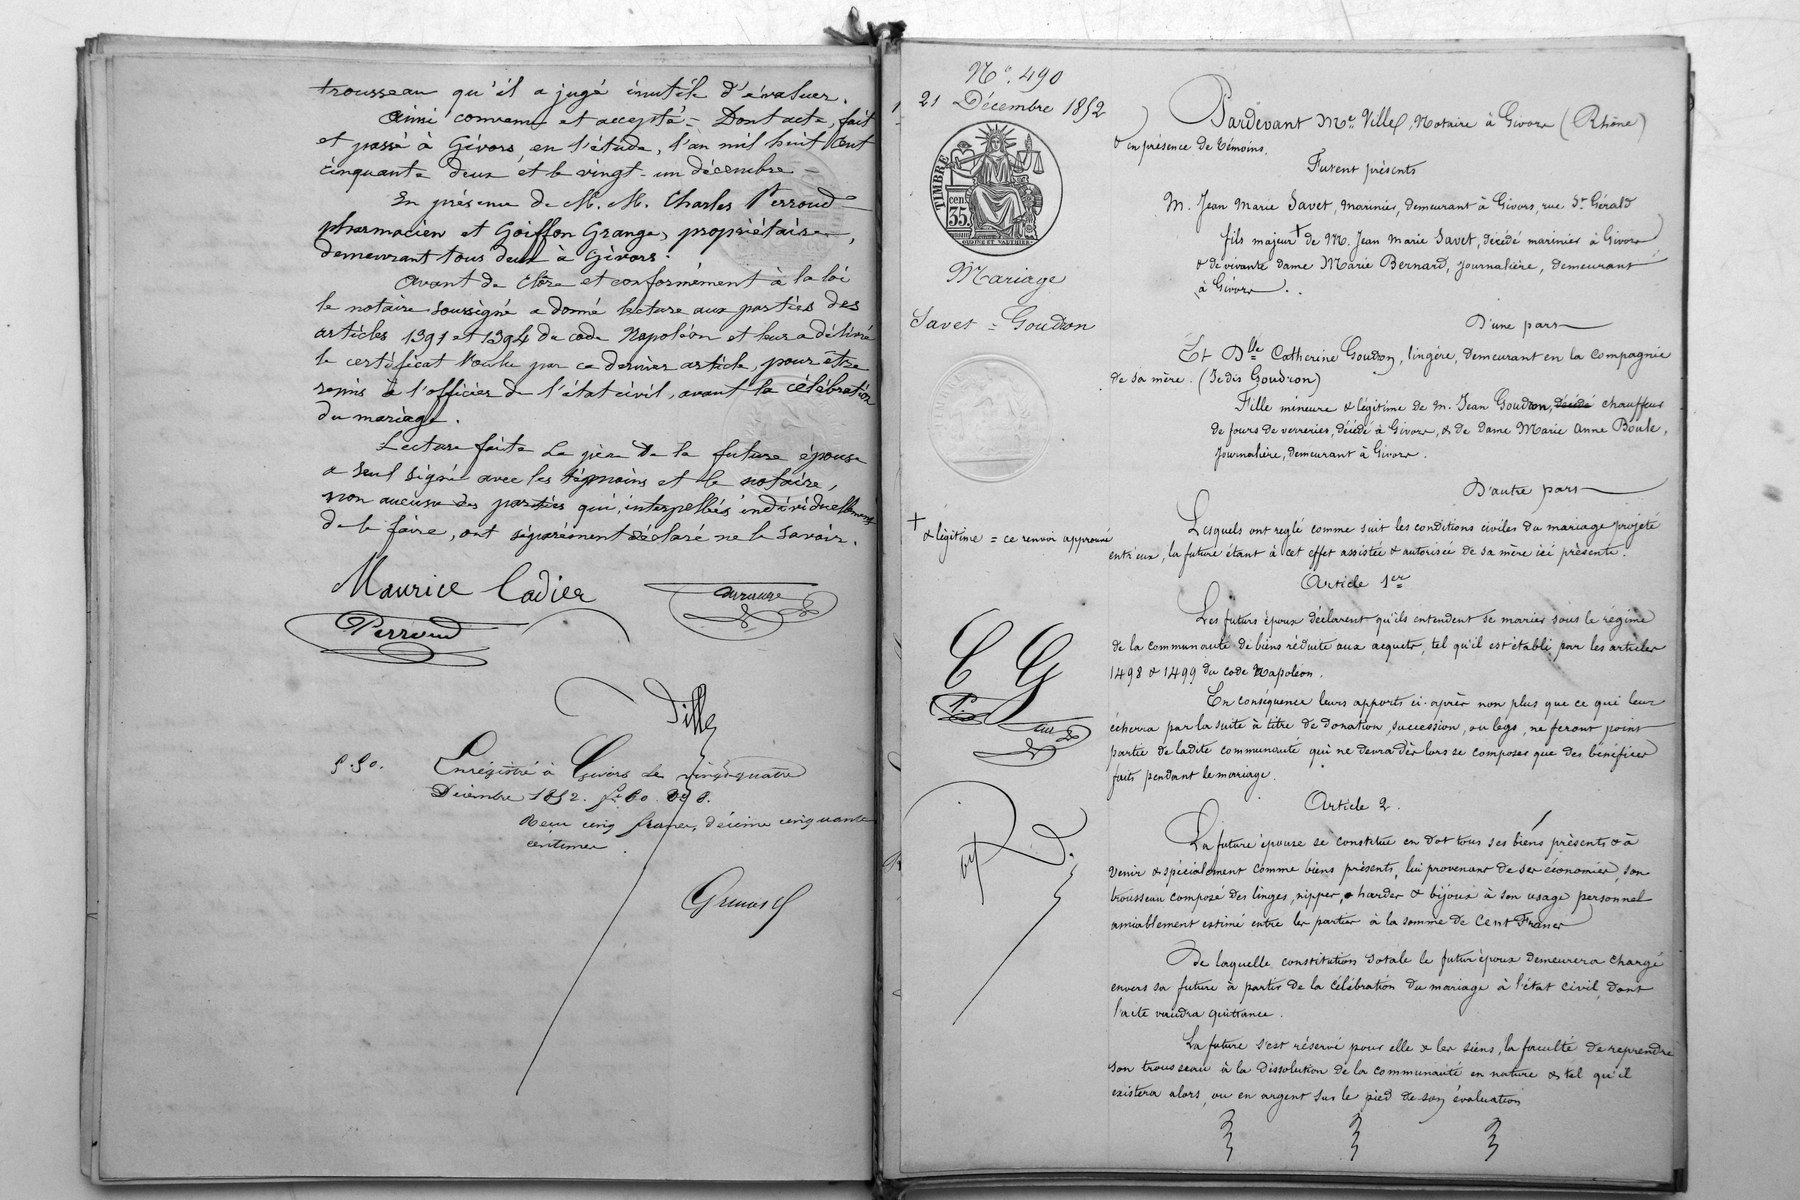 trousseau qu'il a jugé inutile d'évaluer.
Ainsi convenu et accepté = Dont acte, fait
et passé à Givors, en l'étude, l'an mil huit cent
cinquante deux et le vingt-un décembre -
En présence de M. M. Charles Perroud
pharmacien et Goiffon Grange, propriétaire,
demeurant tous deux à Givors.
Avant de clore et conformément à la loi
le notaire soussigné a donné lecture aux parties des
articles 1391 et 1394 du code Napoléon et leur a délivré
le certificat voulu par ce dernier article, pour être
remis à l'officier de l'état civil, avant la célébration
du mariage.
Lecture faite le père de la future épouse
a seul signé avec les témoins et le notaire,
non aucune des parties qui, interpellées individuellement
de le faire, ont séparément déclaré ne le savoir.
Maurice Cadier
Perroud
Ville
Enregistré à Givors le vingt quatre
Décembre 1852. fo 60
Reçu cinq francs, décime cinquante
centimes.
No. 490
21 Décembre 1852
TIMBRE
35 cen
Mariage
Savet = Goudron
+
& légitime = ce renvoi approuvé
C G
Pardevant Me. Ville, Notaire à Givors (Rhône)
& en présence de témoins.
Furent présents
M. Jean Marie Savet, marinier, demeurant à Givors, rue St Gérald
fils majeur + de M. Jean Marie Savet, décédé marinier à Givors
& de vivante dame Marie Bernard, journalière, demeurant
à Givors.
D'une part
Et Dlle Catherine Goudron, lingère, demeurant en la compagnie
de sa mère. (Je dis Goudron)
Fille mineure & légitime de M. Jean Goudron, décédé chauffeur
de fours de verreries, décédé à Givors, & de Dame Marie Anne Boule,
journalière, demeurant à Givors.
D'autre part
Lesquels ont reglé comme suit les conditions civiles du mariage projeté
entr'eux, la future étant à cet effet assistée & autorisée de sa mère ici présente.
Article 1er
Les futurs époux déclarent qu'ils entendent se marier sous le régime
de la communauté de biens réduite aux acquets, tel qu'il est établi par les articles
1498 & 1499 du code Napoléon.
En conséquence leurs apports ci-après non plus que ce qui leur
écherra par la suite à titre de donation, succession, ou legs, ne feront point
partie de ladite communauté qui ne devra dès lors se composer que des bénéfices
faits pendant le mariage.
Article 2.
La future épouse se constitue en dot tous ses biens présents & à
venir & spécialement comme biens présents, lui provenant de ses économies, son
trousseau composé des linges, nippes, hardes & bijoux à son usage personnel
amiablement estimé entre les parties à la somme de Cent Francs
De laquelle constitution dotale le futur époux demeurera chargé
envers sa future à partir de la célébration du mariage à l'état civil, dont
l'acte vaudra quittance.
La future s'est réservé pour elle & les siens, la faculté de reprendre
son trousseau à la dissolution de la communauté en nature & tel qu'il
existera alors, ou en argent sur le pied de son évaluation